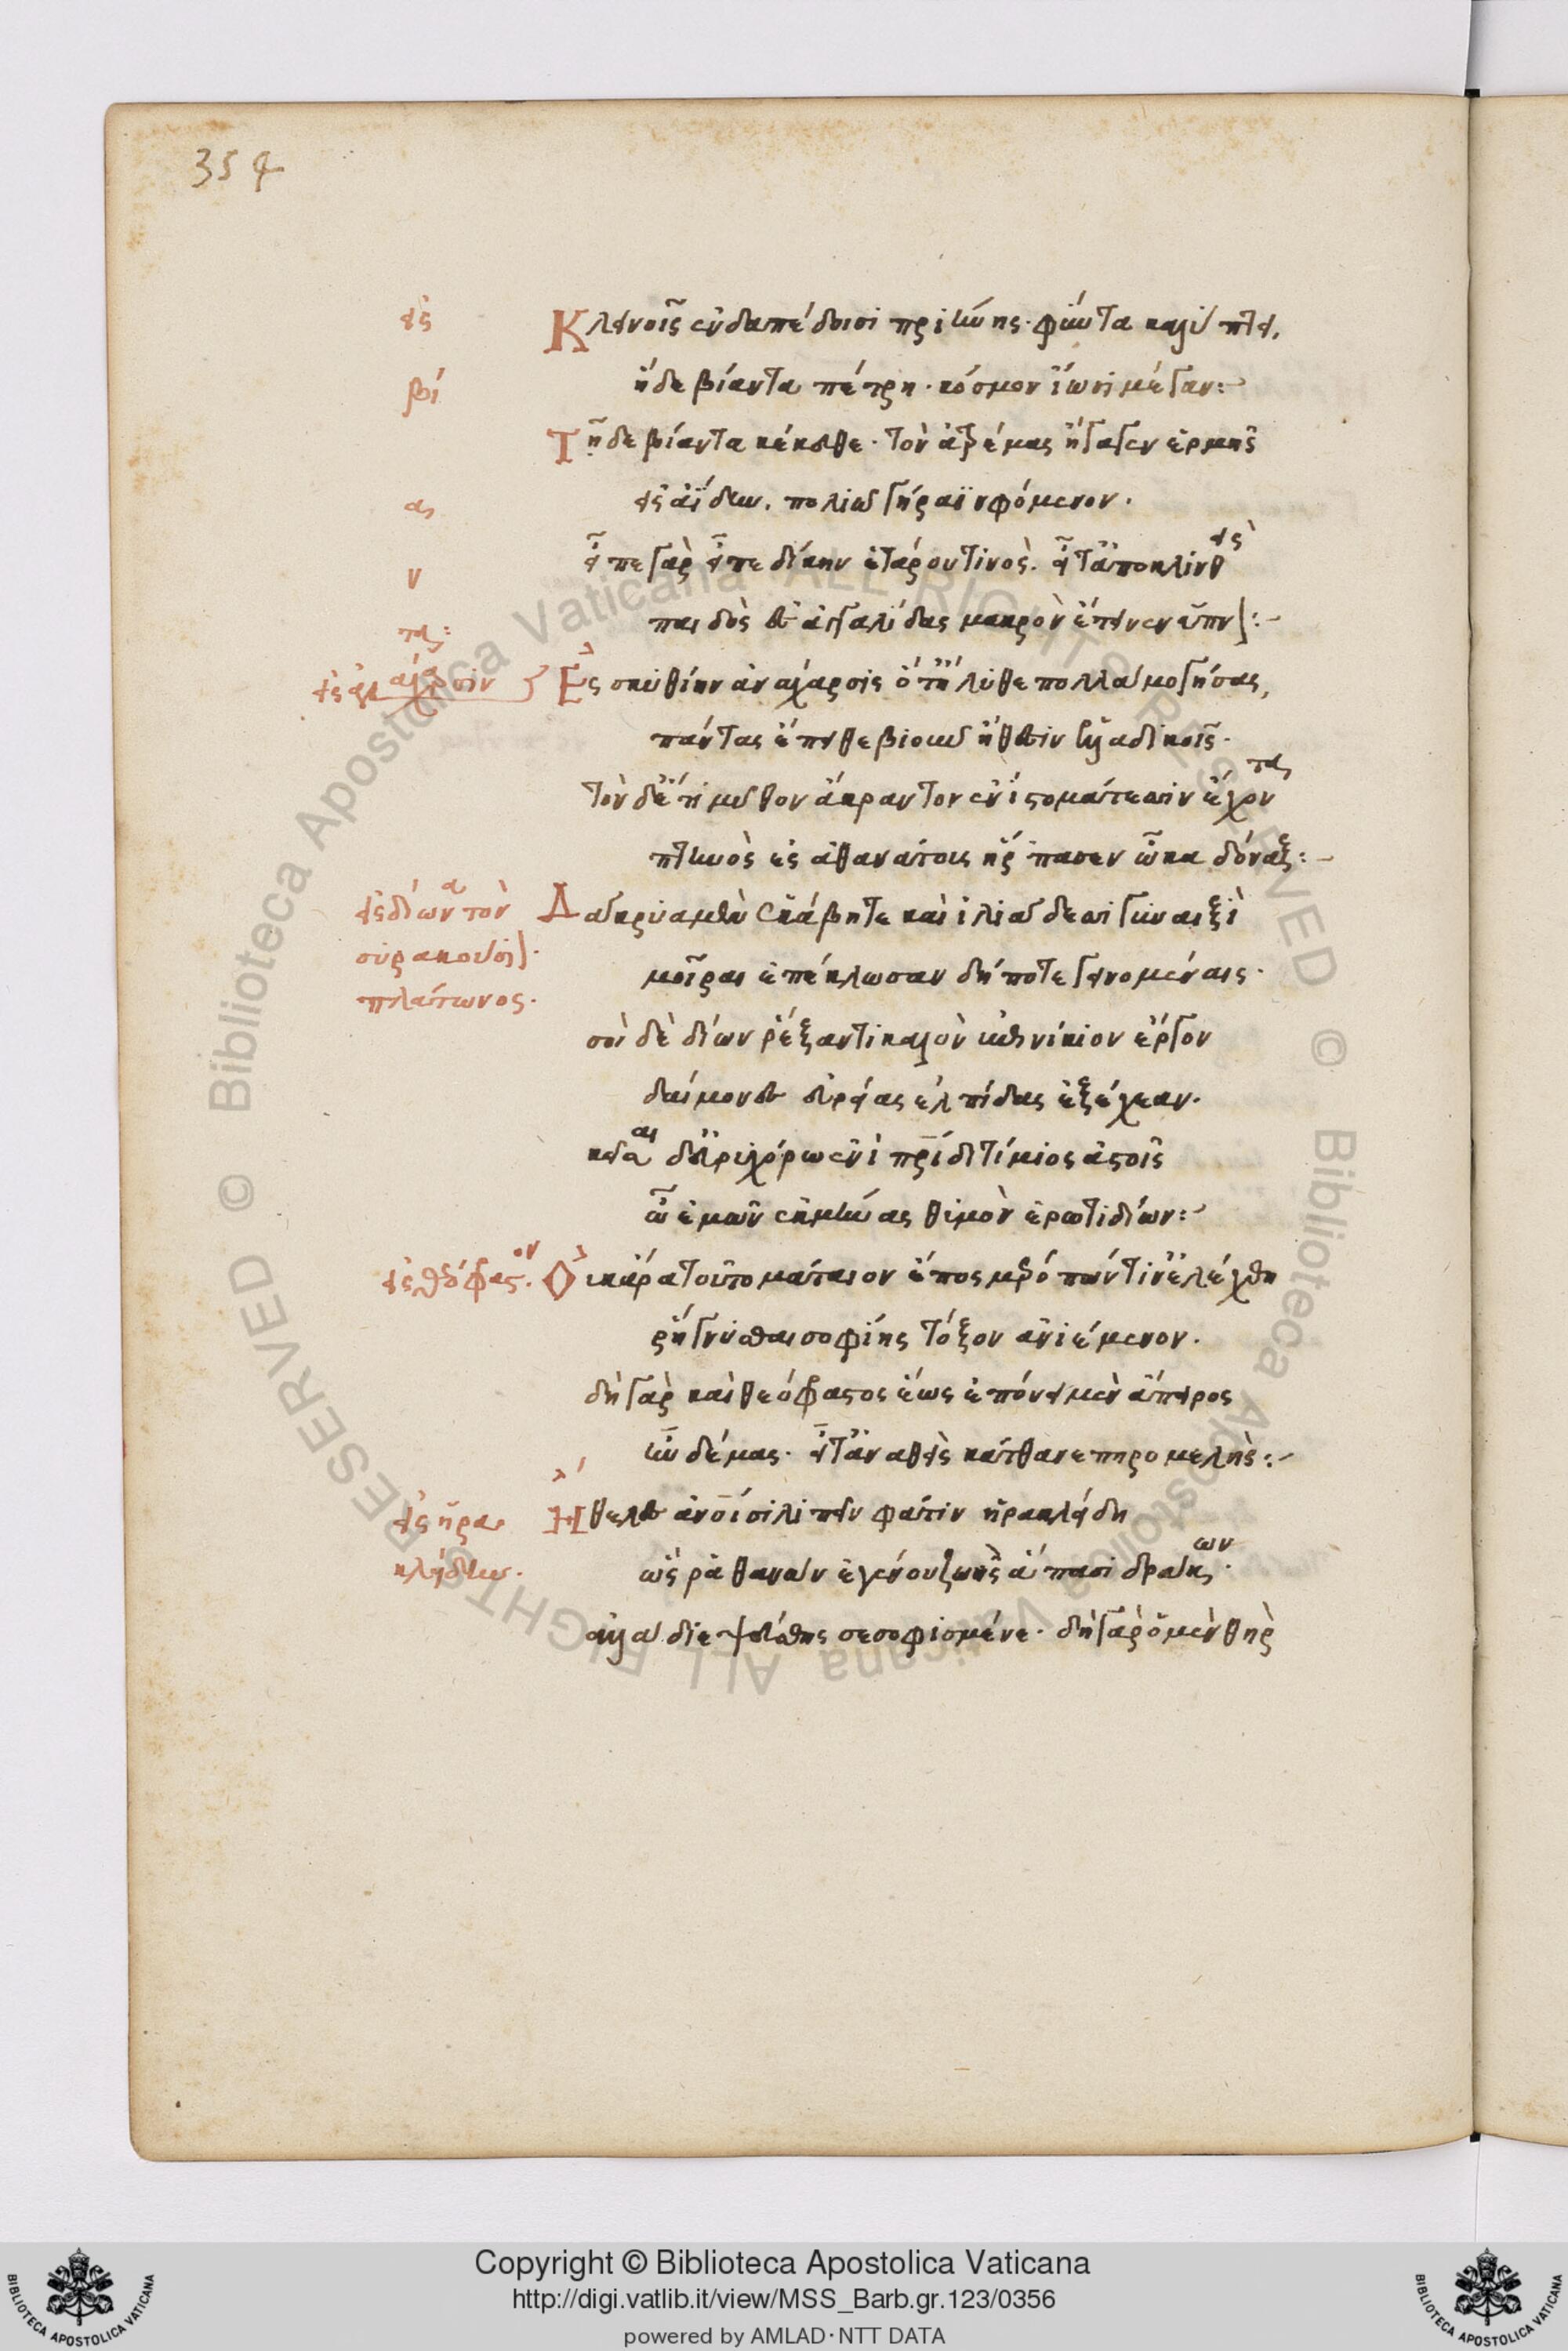 354
εἰς Κλεινοῖς ἐν δαπέδοισι πριήνης· φύντα καλύπτει,
βί ἥδε βίαντα πέτρη· κόσμον ἴωσι μέγαν:
Τῇδε βίαντα κέκευθε· τὸν ἀτρέμας ἤγαγεν ἑρμῆς
αν εἰς ἀΐδην, πολιῷ γήραϊ νιφόμενον.
εἶπε γὰρ εἶπε δίκην ἑτάρου τινὸς· εἶτ' ἀποκλινθεὶς
τα: παιδὸς ἐς ἀγκαλίδας μακρὸν ἔτεινεν ὕπνον:
εἰς ἀνάχαρσιν Ἐς σκυθίην ἀνάχαρσις ὅτ' ἤλυθε πολλὰ μογήσας,
πάντας ἔπειθε βιοῦν ἤθεσιν ἑλλαδικοῖς·
τὸν δ' ἔτι μῦθον ἄκραντον ἐνὶ στομάτεσσιν ἔχοντα
πτηνὸς ἐς ἀθανάτους ἥρπασεν ὦκα δόναξ:
εἰς δίωνα τὸν Δάκρυα μὲν ἑκάβη τε καὶ ἰλιάδεσσι γυναιξὶ
συρακούσιον·
μοῖραι ἐπέκλωσαν δή ποτε γεινομέναις·
πλάτωνος·
σοὶ δὲ δίων ῥέξαντι καλὸν ἐπινίκιον ἔργον
δαίμονες εὐρείας ἐλπίδας ἐξέχεαν·
κεῖσαι δ' εὐρυχόρῳ ἐνὶ πατρίδι τίμιος ἀστοῖς
ὦ ἐμὸν ἐκμήνας θυμὸν ἔρωτι δίων:
εἰς θεόφραστον· Οὐκ ἄρα τοῦτο μάταιον ἔπος μερόπων τινὶ ἐλέχθη
ῥήγνυσθαι σοφίης τόξον ἀνιέμενον·
δὴ γὰρ καὶ θεόφραστος ἕως ἐπόνει μὲν ἄπηρος
ἦν δέμας· εἶτ' ἀνεθεὶς κάτθανε πηρομελὴς:
εἰς ἡρακλείδην· Ἤθελες ἀνθρώποισι λιπεῖν φάτιν ἡρακλείδη
ὥς ῥα θανὼν ἐγένου ζωὸς ἅπασι δράκων·
ἀλλὰ διεψεύσθης σεσοφισμένε· δὴ γὰρ ὁ μὲν θὴρ
Copyright © Biblioteca Apostolica Vaticana
http://digi.vatlib.it/view/MSS_Barb.gr.123/0356
powered by AMLAD·NTT DATA